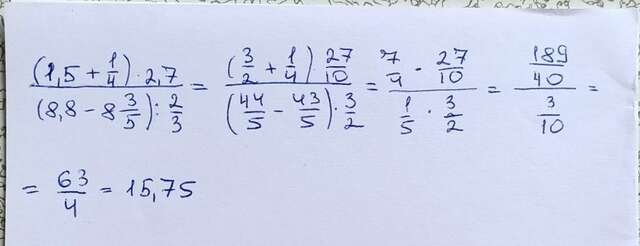 \frac{(1,5 + \frac{1}{4}) \cdot 2,7}{(8,8 - 8\frac{3}{5}) : \frac{2}{3}} = \frac{(\frac{3}{2} + \frac{1}{4}) \frac{27}{10}}{(\frac{44}{5} - \frac{43}{5}) \cdot \frac{3}{2}} = \frac{\frac{7}{4} \cdot \frac{27}{10}}{\frac{1}{5} \cdot \frac{3}{2}} = \frac{\frac{189}{40}}{\frac{3}{10}} =
= \frac{63}{4} = 15,75